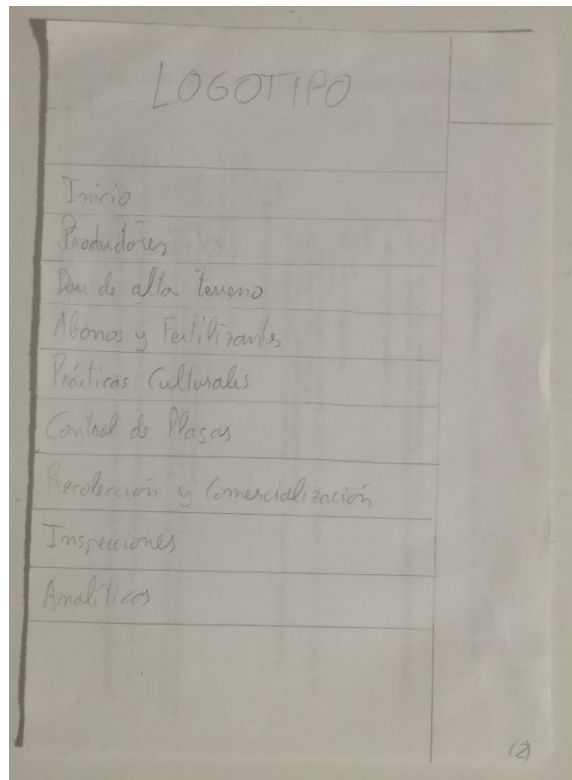 LOGOTIPO
Inicio
Productores
Dar de alta terreno
Abonos y Fertilizantes
Prácticas Culturales
Control de Plagas
Recolección y Comercialización
Inspecciones
Analíticas
(2)